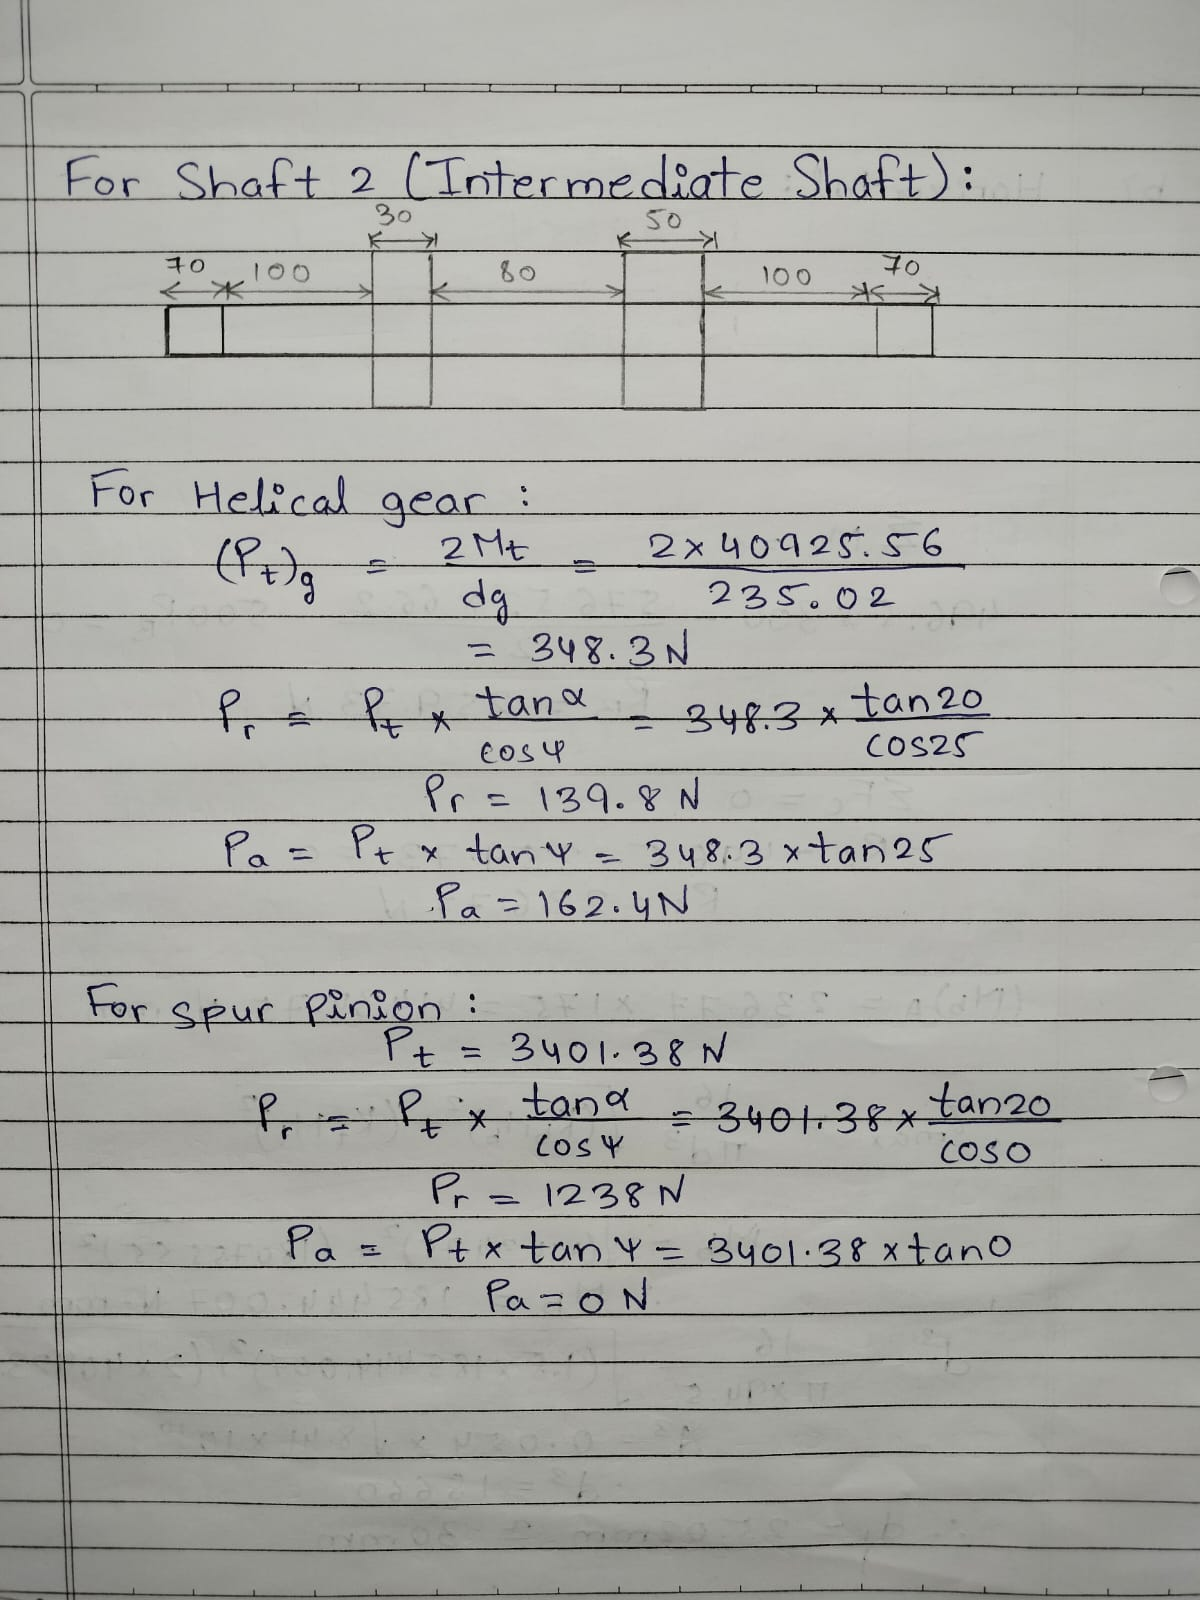 For Shaft 2 (Intermediate Shaft):
30 50
70 100 80 100 70
For Helical gear :
(Pt)g = 2Mt / dg = 2 × 40925.56 / 235.02
= 348.3 N
Pr = Pt × tan α / cos ψ = 348.3 × tan20 / cos25
Pr = 139.8 N
Pa = Pt × tan ψ = 348.3 × tan25
Pa = 162.4N
For spur Pinion :
Pt = 3401.38 N
Pr = Pt × tan α / cos ψ = 3401.38 × tan20 / cos0
Pr = 1238 N
Pa = Pt × tan ψ = 3401.38 × tan0
Pa = 0 N